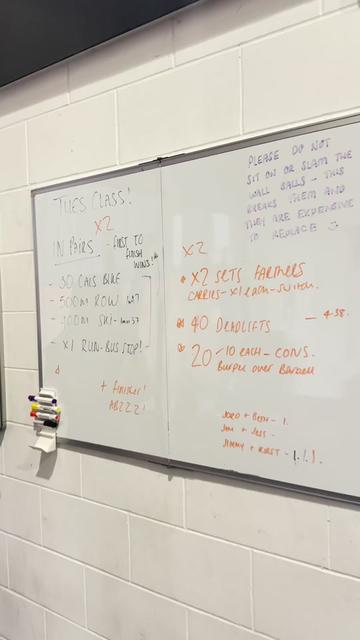 TUES CLASS!
x2
IN PAIRS - FIRST TO
FINISH
WINS!
- 30 CALS BIKE
- 500M ROW 1:47
- 400M SKI -
- x1 RUN - BUS STOP!
+ finisher!
ABZZZ!
PLEASE DO NOT
SIT ON OR SLAM THE
WALL BALLS - THIS
BREAKS THEM AND
THEY ARE EXPENSIVE
TO REPLACE :)
x2
x2 SETS FARMERS
CARRIES - x1 EACH - SWITCH.
40 DEADLIFTS - 4:38.
20 - 10 EACH - CONS.
Burpee over Barbell
JORD + BETH - 1.
JIM + JESS -
JIMMY + KIRST - 1.1.1.